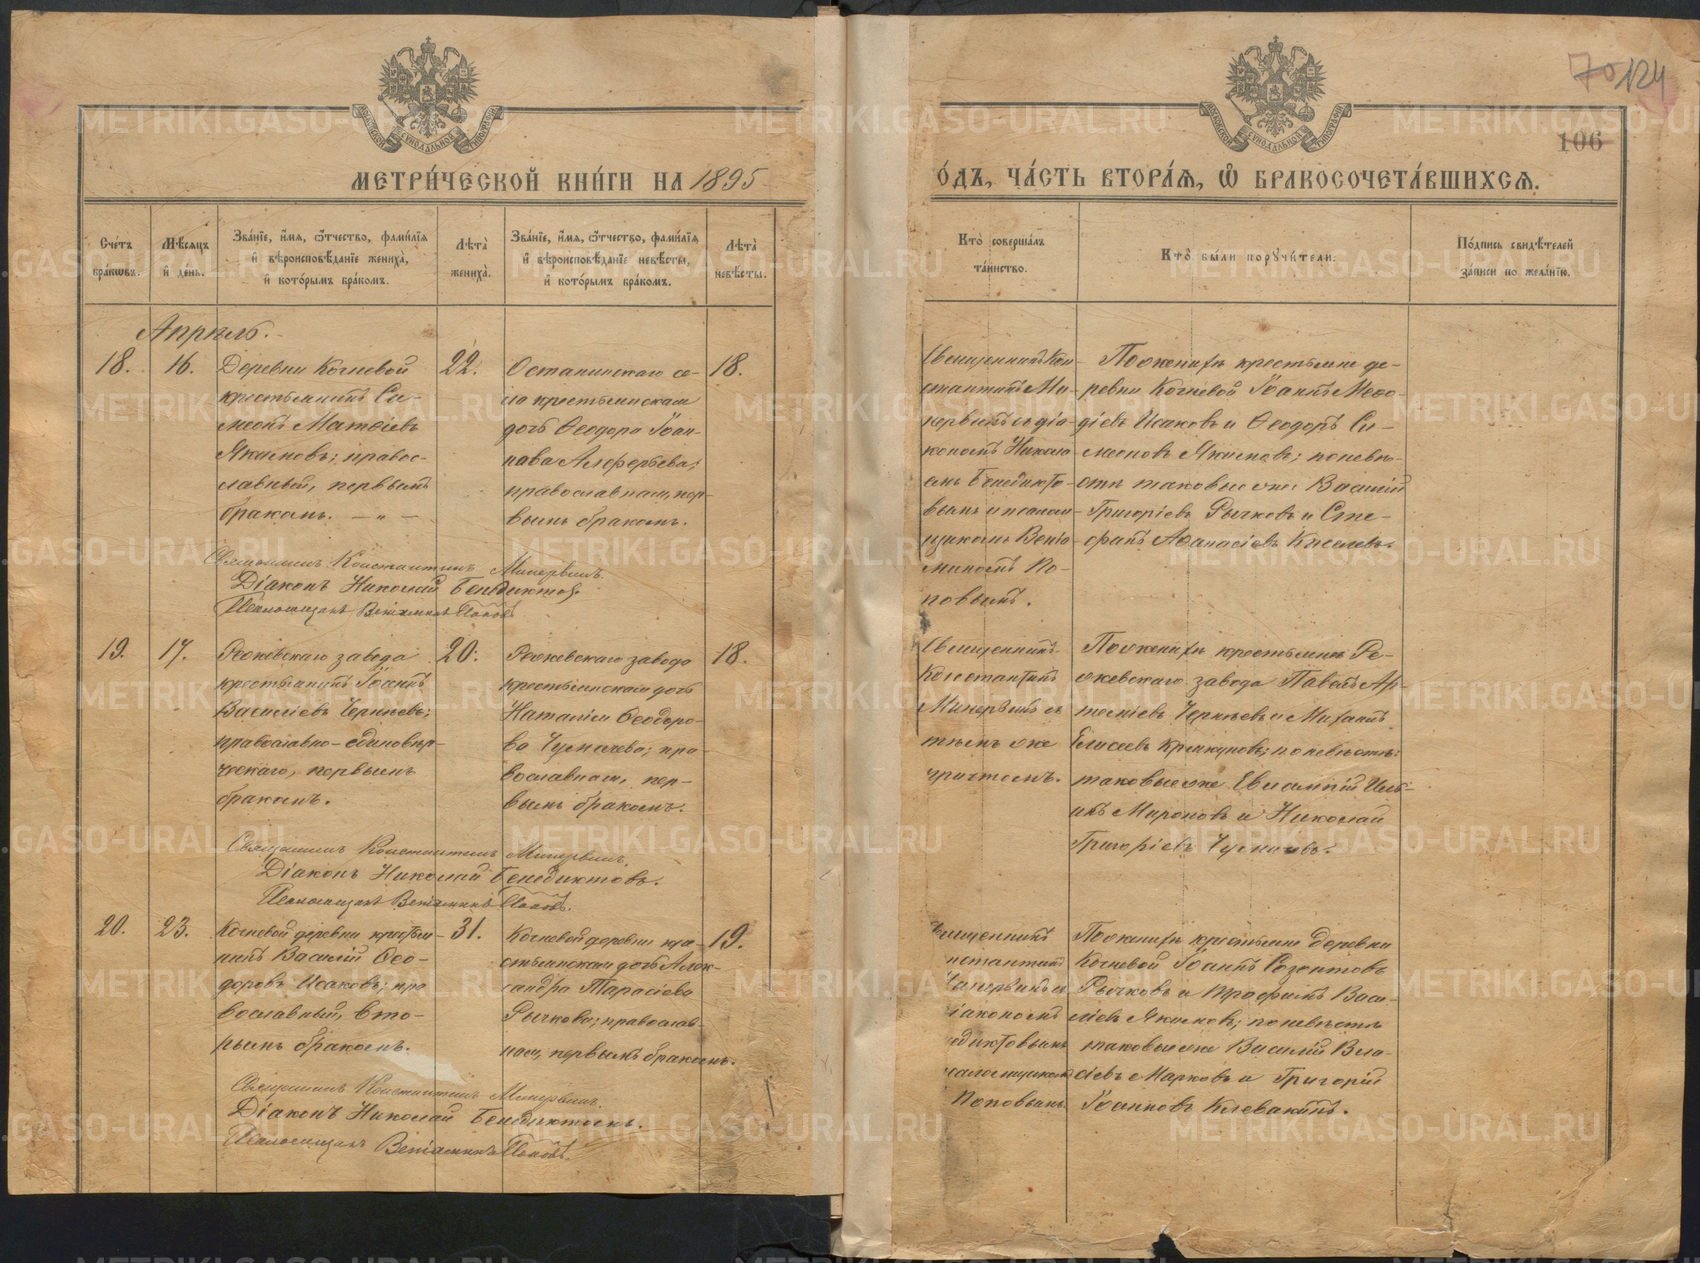 МОСКОВСКОЙ СѴНОДАЛЬНОЙ ТИПОГРАФІИ
МОСКОВСКОЙ СѴНОДАЛЬНОЙ ТИПОГРАФІИ
70 124
106
МЕТРИ́ЧЕСКОЙ КНИ́ГИ НА 1895
О́ДЪ, ЧА́СТЬ ВТОРА́Ѧ, Ѡ҆ БРАКОСОЧЕТА́ВШИХСѦ.
Сче́тъ бра́кѡвъ.
Мѣ́сѧцъ и҆ де́нь.
Зва́нїе, и҆́мѧ, ѻ҆́тчество, фами́лїѧ
и҆ вѣроисповѣ́данїе жениха̀,
и҆ кото́рымъ бра́комъ.
Лѣта̀ жениха̀.
Зва́нїе, и҆́мѧ, ѻ҆́тчество, фами́лїѧ
и҆ вѣроисповѣ́данїе невѣ́сты,
и҆ кото́рымъ бра́комъ.
Лѣта̀ невѣ́сты.
Кто̀ соверша́лъ
та́инство.
Кто̀ бы́ли порꙋчи́тели.
По́дпись свидѣ́телей
за́писи по жела́нїю.
Апрѣль.
18. 16.
Деревни Кочневой
крестьянинъ Си-
меонъ Матѳіевъ
Якимовъ; правос-
лавный, первымъ
бракомъ. — „ —
22.
Останинскаго се-
ла крестьянская
дочь Ѳеодора Іоан-
нова Алферьева;
православная, пер-
вымъ бракомъ.
18.
Священникъ Кон-
стантинъ Ми-
нервинъ съ діа-
кономъ Никола-
емъ Бенедикто-
вымъ и псалом-
щикомъ Веніа-
миномъ По-
повымъ.
По женихѣ крестьяне де-
ревни Кочневой Іоаннъ Меѳо-
діевъ Исаковъ и Ѳеодоръ Си-
меоновъ Якимовъ; по невѣ-
стѣ таковые же Василій
Григоріевъ Рычковъ и Сте-
фанъ Аѳанасіевъ Киселевъ.
Священникъ Константинъ Минервинъ.
Діаконъ Николай Бенедиктовъ
Псаломщикъ Веніаминъ Поповъ
19. 17.
Режевскаго завода
крестьянинъ Іоаннъ
Василіевъ Черневъ;
православно-единовѣр-
ческаго, первымъ
бракомъ.
20.
Режевскаго завода
крестьянская дочь
Наталія Ѳеодоро-
ва Чусмачева; пра-
вославная, пер-
вымъ бракомъ.
18.
Священникъ
Константинъ
Минервинъ съ
тѣмъ же
причтомъ.
По женихѣ крестьяне Ре-
жевскаго завода Павелъ Ар-
темьевъ Черневъ и Михаилъ
таковые же Евлампій Иль-
инъ Мироновъ и Николай
Священникъ Константинъ Минервинъ.
Діаконъ Николай Бенедиктовъ.
Псаломщикъ Веніаминъ Поповъ.
20. 23.
Кочневой деревни крестья-
нинъ Василій Ѳео-
доровъ Исаковъ; пра
вославный, вто-
рымъ бракомъ.
31.
Кочневой деревни кре-
стьянская дочь Алек-
сандра Тарасіева
Рычкова; православ-
ная, первымъ бракомъ.
19.
вященникъ
нстантинъ
инервинъ съ
іакономъ
едиктовымъ
саломщикомъ
Поповымъ.
По женихѣ крестьяне деревни
Кочневой Іоаннъ Созонтовъ
Рычковъ и Трофимъ Васи-
ліевъ Якимовъ; по невѣстѣ
таковые же Василій Вла-
сіевъ Марковъ и Григорій
Іоанновъ Клевакинъ.
Священникъ Константинъ Минервинъ.
Діаконъ Николай Бенедиктовъ.
Псаломщикъ Веніаминъ Поповъ.
METRIKI.GASO-URAL.RU